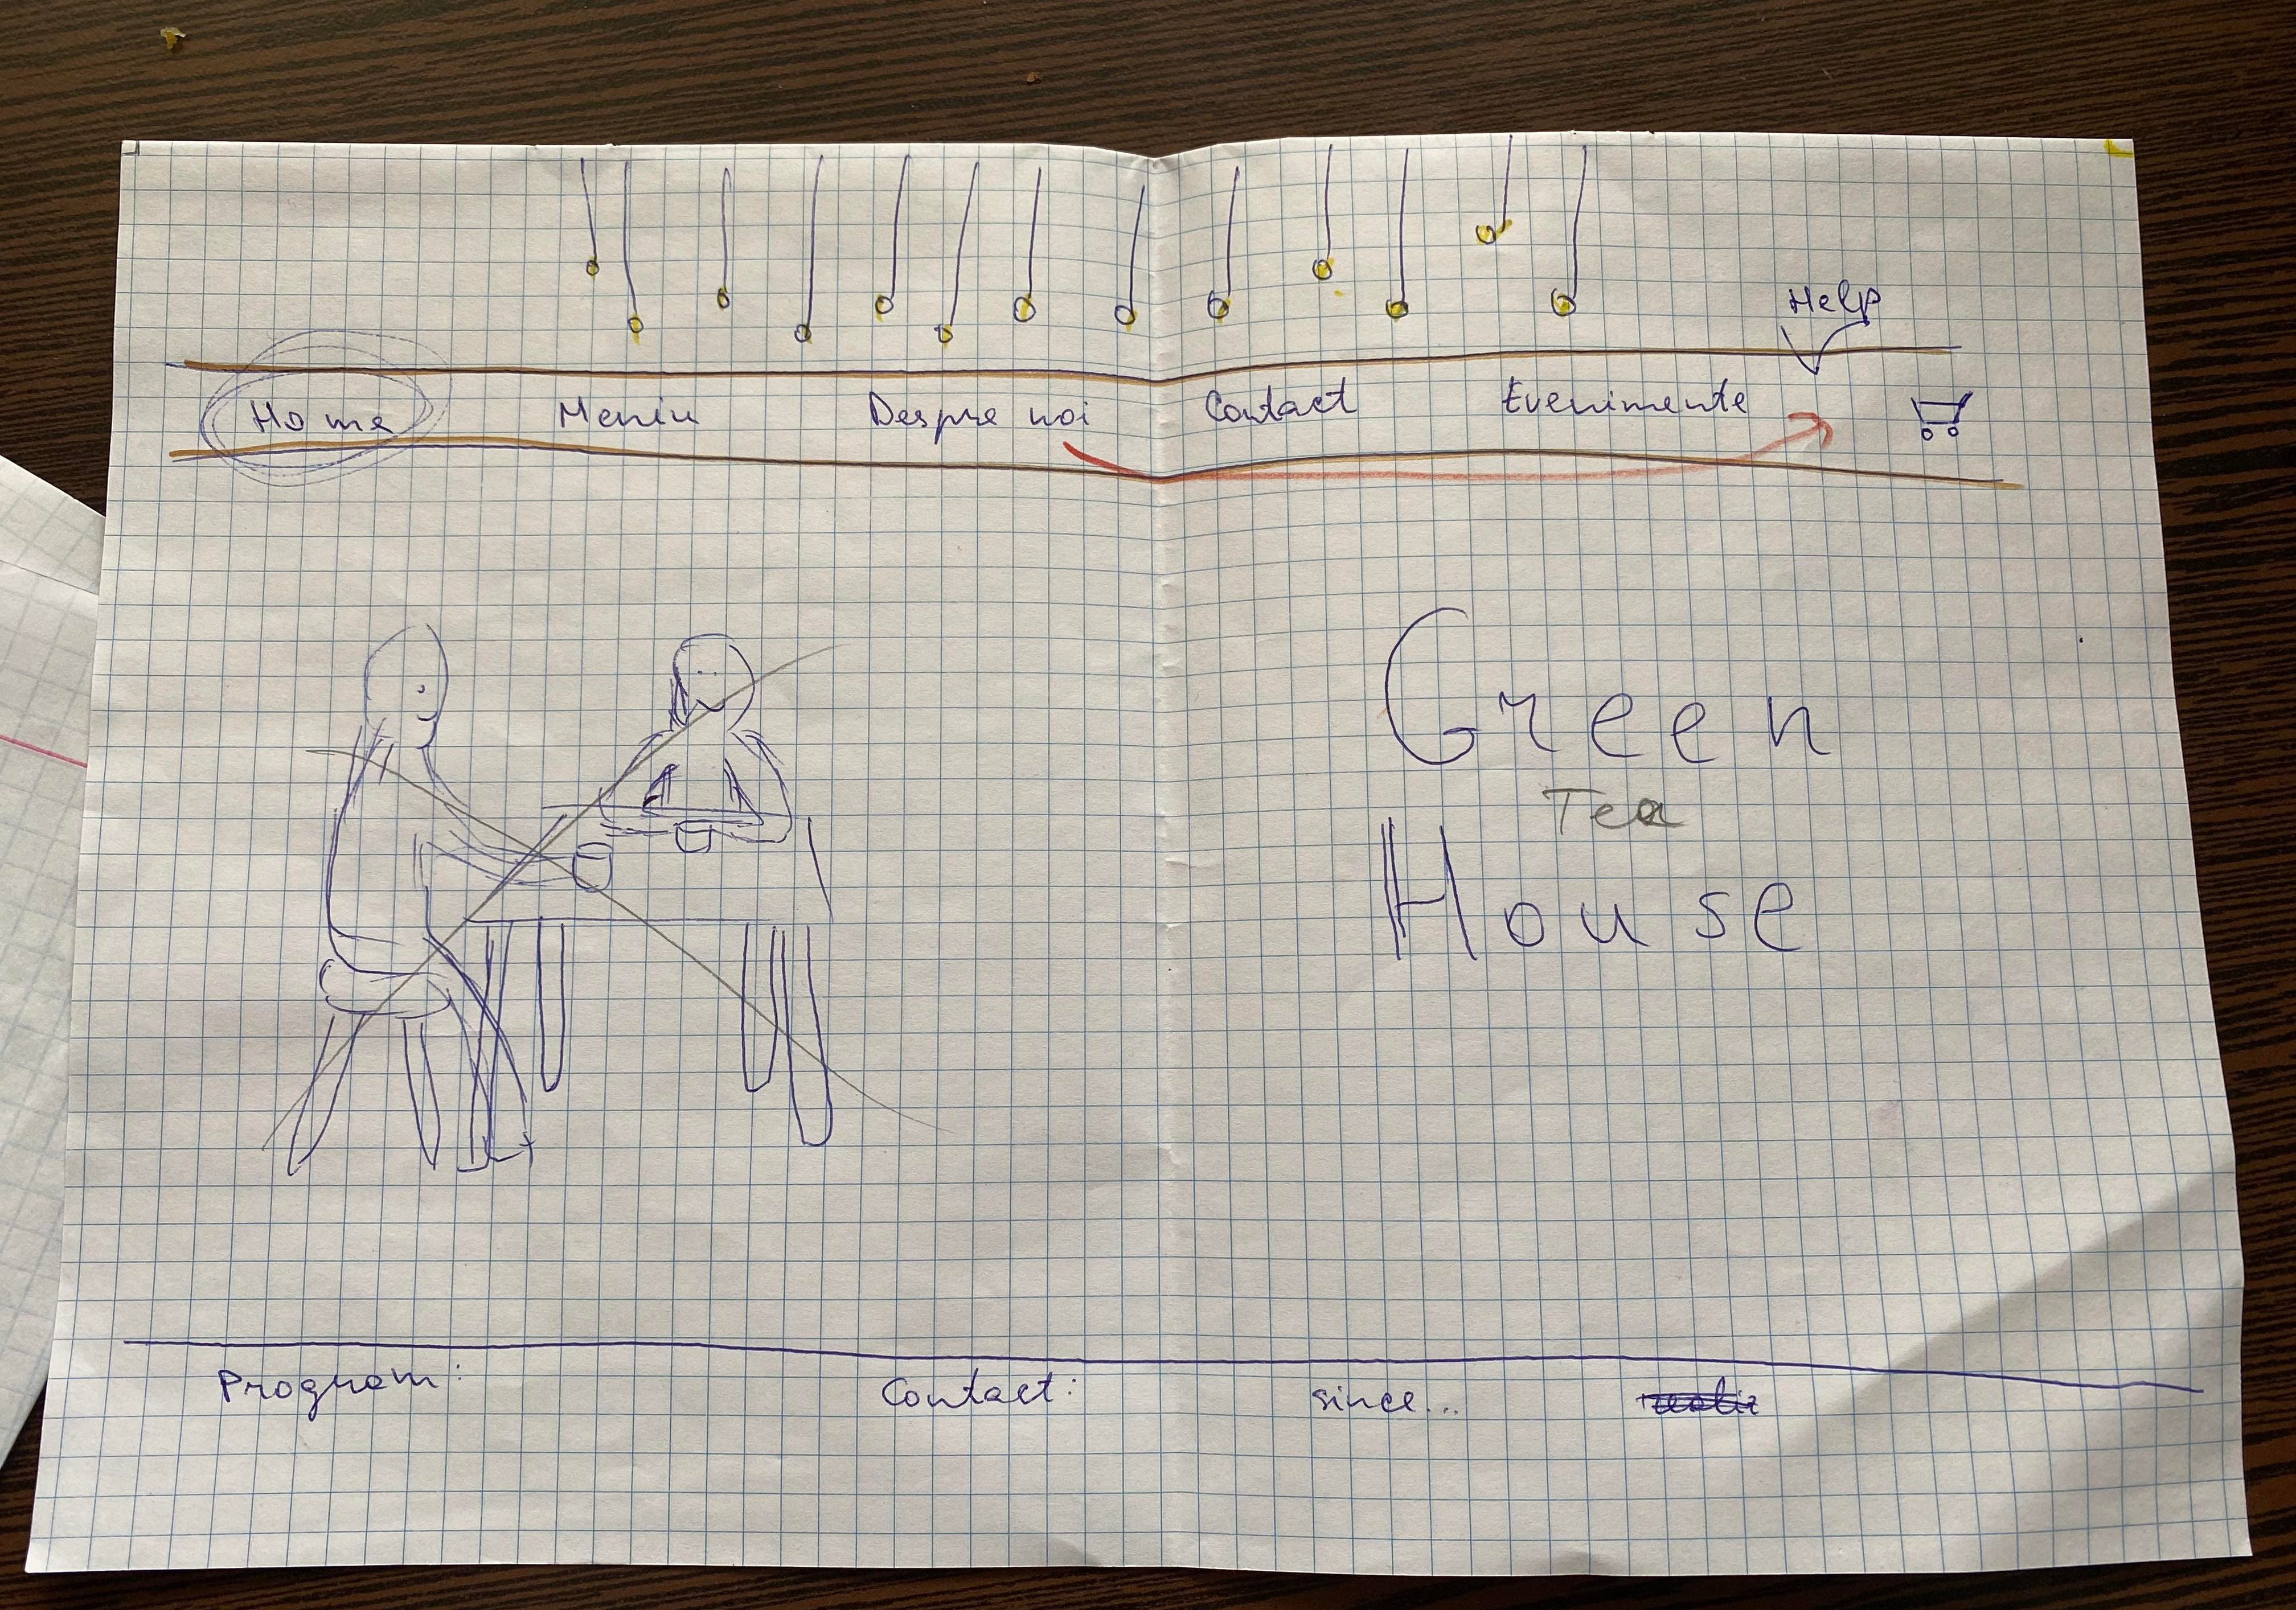 Help
Home Meniu Despre noi Contact Evenimente
Green
Tea
House
Program: Contact: since...